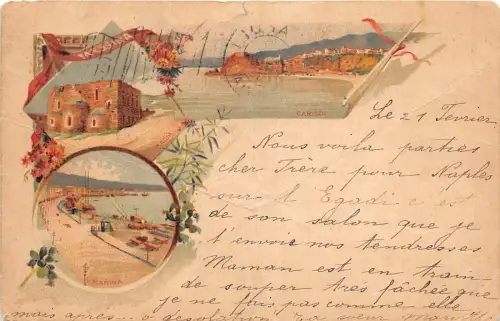 CARINI
MARINA
Le 21 Fevrier
Nous voila parties
cher Frère pour Naples
sur l'Egadi c'est
de son salon que je
t'envoie nos tendresses
Maman est en train
de souper tres fâchée que
je ne fais pas comme elle
mais après